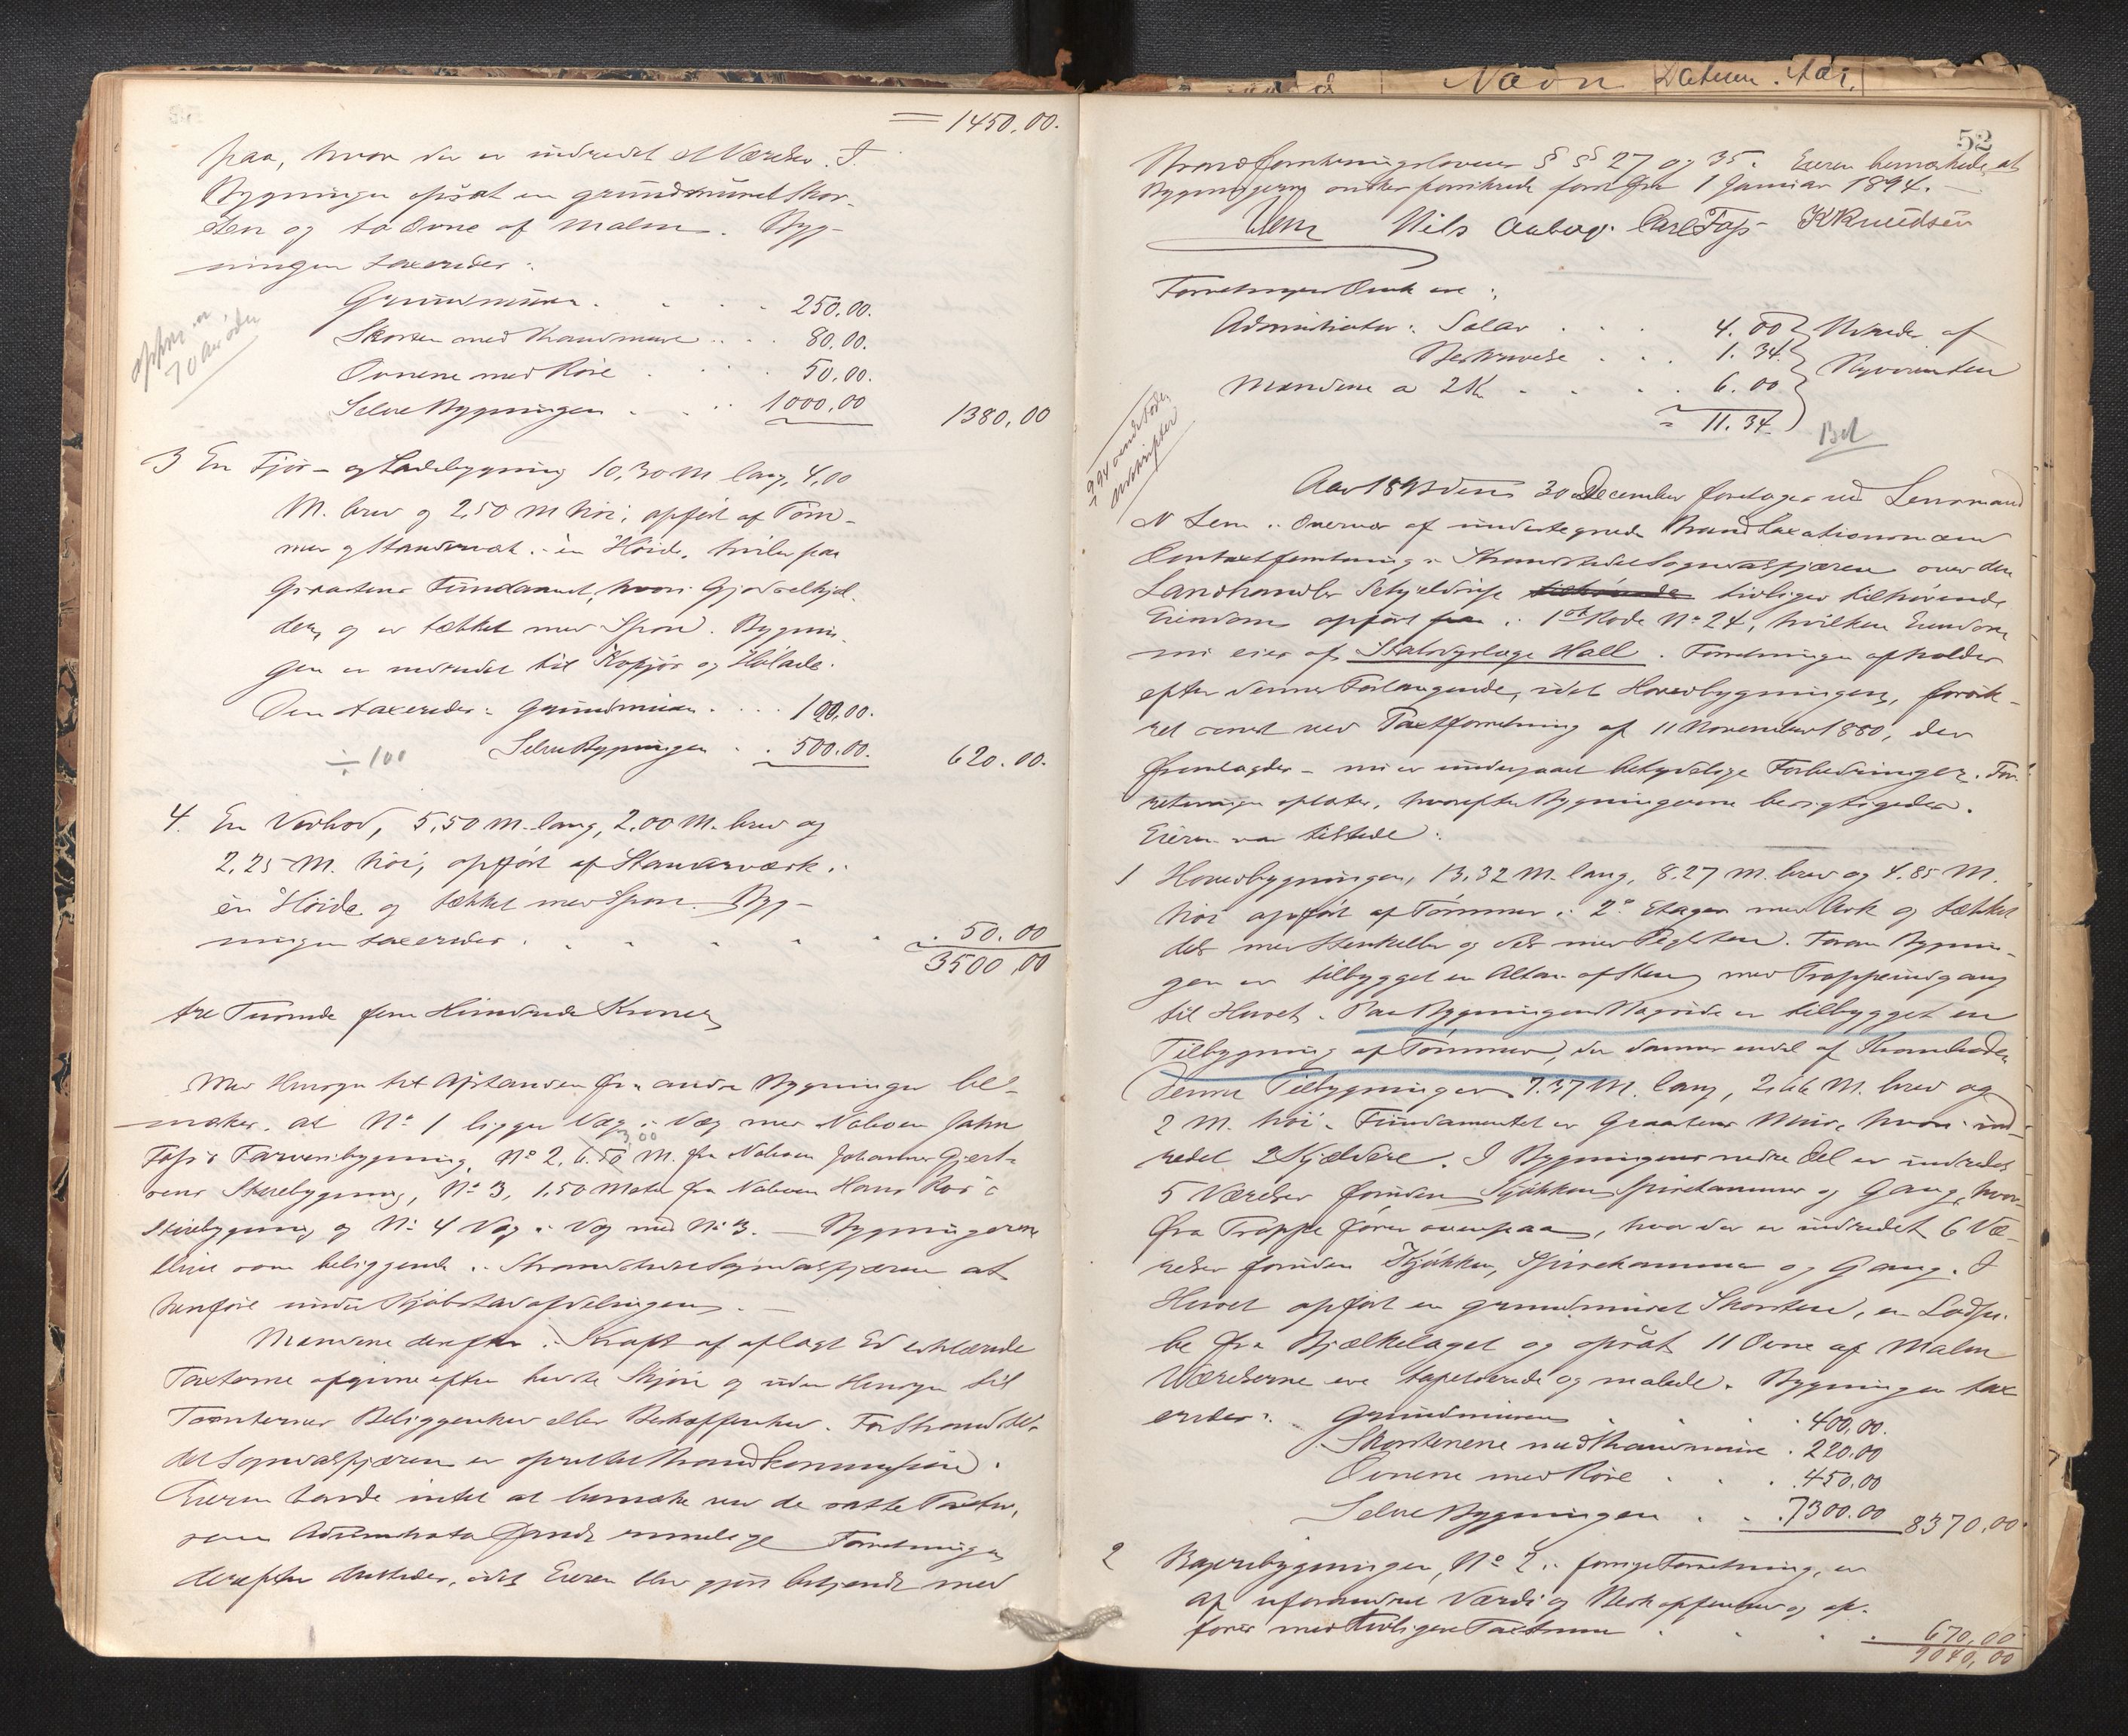 = 1450.00.
paa, hvor der er indredet et Værelse. I
Bygningen opsat en grundmuret Skor-
sten og to Ovne af Malm. Byg-
ningen taxeredes:
Grundmuren . . . . 250.00.
Skorsten med Brandmure . . . 80.00.
Ovnene med Röre . . . . 50.00.
Selve Bygningen . . . 1000.00 1380.00
3 En Fjös- og Ladebygning 10,30 M lang, 4,00
M. bred og 2,50 M höi, opfört af Töm-
mer og Standværk i en Höide, hviler paa
Graastens Fundament, hvori Gjödselkjæl-
der, og er tækket med Spon. Bygnin-
gen er indredet til Kofjös og Hölade.
Den taxeredes: Grundmuren . . . 120.00.
÷ 100 Selve Bygningen . . 500.00. 620.00.
4. En Vedbod, 5,50 M. lang, 2,00 M. bred og
2,25 M. höi, opfört af Standværk i
en Höide og tækket med Spon. Byg-
ningen taxeredes . . . . . . 50.00
3500,00
tre Tusinde fem Hundrede Kroner
Med Hensyn til Afstanden fra andre Bygninger be-
mærkes, at No 1 ligger Væg i Væg med Naboen John
Foss's Farveribygning, No 2, 6.50 3,00 M. fra Naboen Johannes Gjert-
sens Stuebygning, No 3, 1,50 Meter fra Naboen Hans Ros's
Stuebygning og No 4 Væg i Væg med No 3. — Bygningerne
blive som beliggende i Strandstedet Sogndalsfjæren at
henföre under Kjöbstadafdelingen. —
Mændene derefter i Kraft af aflagt Ed erklærede
Taxterne afgivne efter bedste Skjön og uden Hensyn til
Tomternes Beliggenhed eller Beskaffenhed. For Strandste-
det Sogndalsfjæren er oprettet Brandkommission.
Eieren havde intet at bemærke ved de satte Taxter,
som Administrator fandt rimelige. Forretningen
derefter sluttedes, idet Eieren blev gjort bekjendt med
Navn Datum
52
Brandforsikringslovens §§ 27 og 35. Eieren bemærkede, at
Bygningerne önskes forsikrede fra 1 Januar 1894. —
Lem Nils Aaberge Carl Foss K Knudsen
Forretningens Omk ere:
Administrator: Salær . . . 4.00
Beskrivelse . . . 1.34.
Mændene a 2 Kr . . . . 6.00
= 11.34
Betal
Aar 1893 den 30 December foretoges ved Lensmand
N Lem i Overvær af undertegnede Brandtaxationsmænd
Omtaxtforretning i Strandstedet Sogndalsfjæren over den
Landhandler tilhörende tidligere tilhörende
Eiendom opfört paa i 1ste Rode No 24, hvilken Eiendom
nu eies af Hall. Forretningen afholdes
efter dennes Forlangende, idet Hovedbygningen, forsik-
ret senest ved Taxtforretning af 11 November 1880, der
fremlagdes — nu er undergaaet betydelige Forbedringer. For-
retningen oplæstes, hvorefter Bygningerne besigtigedes.
Eieren var tilstede:
1 Hovedbygningen, 13,32 M. lang, 8.27 M. bred og 4.85 M.
höi opfört af Tömmer i 2de Etager med Ark og tækket
dels med Stenheller og dels med Teglsten. Foran Bygnin-
gen er tilbygget en Altan af Sten med Trappeindgang
til Huset. Paa Bygningens Bagside er tilbygget en
Tilbygning af Tömmer, der danner endel af Kramboden
Denne Tilbygning er 7.37 M. lang, 2,66 M. bred og
2 M. höi. Fundamentet er Graastens Mur, hvori ind-
redet 2 Kjældere. I Bygningens nedre Del er indredet
5 Værelser foruden Kjökken, Spisekammer og Gang, hvor-
fra Trappe förer ovenpaa, hvor der er indredet 6 Væ-
relser foruden Kjökken, Spisekammer og Gang. I
Huset opfört en grundmuret Skorsten, en Lodpi-
be fra Bjælkelaget og opsat 11 Ovne af Malm
Værelserne ere tapetserede og malede. Bygningen tax
eredes: Grundmuren . . . . 400.00.
Skorstenene med Brandmure . 220.00
Ovnene med Röre . . . 450,00
Selve Bygningen . . . 7300.00 8370,00.
2 Bryggeribygningen, No 2 i forrige Forretning, er
af uforandret Værdi og Beskaffenhed og op-
föres med tidligere Taxtsum . . . . 670,00
9040,00